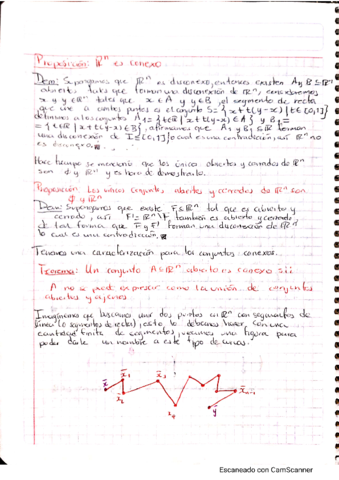 Proposición: ℝⁿ es conexo.
Dem: Supongamos que ℝⁿ es disconexo, entonces existen A y B ⊆ ℝⁿ
abiertos tales que forman una disconexión de ℝⁿ, consideremos
x y y ∈ ℝⁿ tales que x ∈ A y y ∈ B, el segmento de recta
que une a ambos puntos es el conjunto S = { x + t(y-x) | t ∈ [0,1] }
definamos a los conjuntos A₁ = { t ∈ ℝ | x + t(y-x) ∈ A } y B₁ =
= { t ∈ ℝ | x + t(y-x) ∈ B }, afirmamos que A₁ y B₁ ⊆ ℝ forman
una disconexión de I = [0,1] lo cual es una contradicción, así ℝⁿ no
es
Hace tiempo se mencionó que los únicos abiertos y cerrados de ℝⁿ
son ∅ y ℝⁿ y es hora de demostrarlo.
Proposición: Los únicos conjuntos abiertos y cerrados de ℝⁿ son
∅ y ℝⁿ
Dem: Supongamos que existe F ⊆ ℝⁿ tal que es abierto y
cerrado, así Fᶜ = ℝⁿ \ F también es abierto y cerrado
de tal forma que F y Fᶜ forman una disconexión de ℝⁿ
lo cual es una contradicción.
Tenemos una caracterización para los conjuntos conexos.
Teorema: Un conjunto A ⊆ ℝⁿ abierto es conexo sii
A no se puede expresar como la unión de conjuntos
abiertos y ajenos.
Imaginemos que buscamos unir dos puntos en ℝⁿ con segmentos de
línea (o segmentos de recta), esto, lo debemos hacer, con una
cantidad finita de segmentos, veamos una figura para
poder darle un nombre a este tipo de curvas.
x̄ x̄₁ x̄₃
x̄₂ x̄ₙ₋₁
x̄₄ ȳ
Escaneado con CamScanner